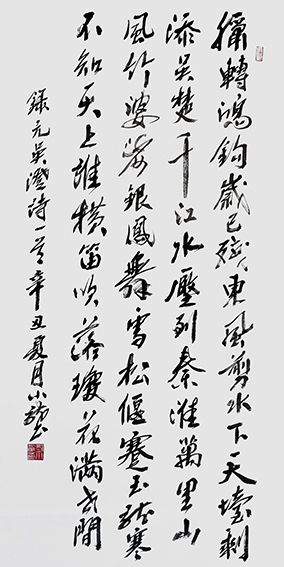 臘轉鴻鈞歲已殘東風剪水下天壇剩
添吳楚千江水壓到秦淮萬里山
風竹婆娑銀鳳舞雪松偃蹇玉龍寒
不知天上誰橫笛吹落瓊花滿世間
錄元吳澄詩一首辛丑夏月小